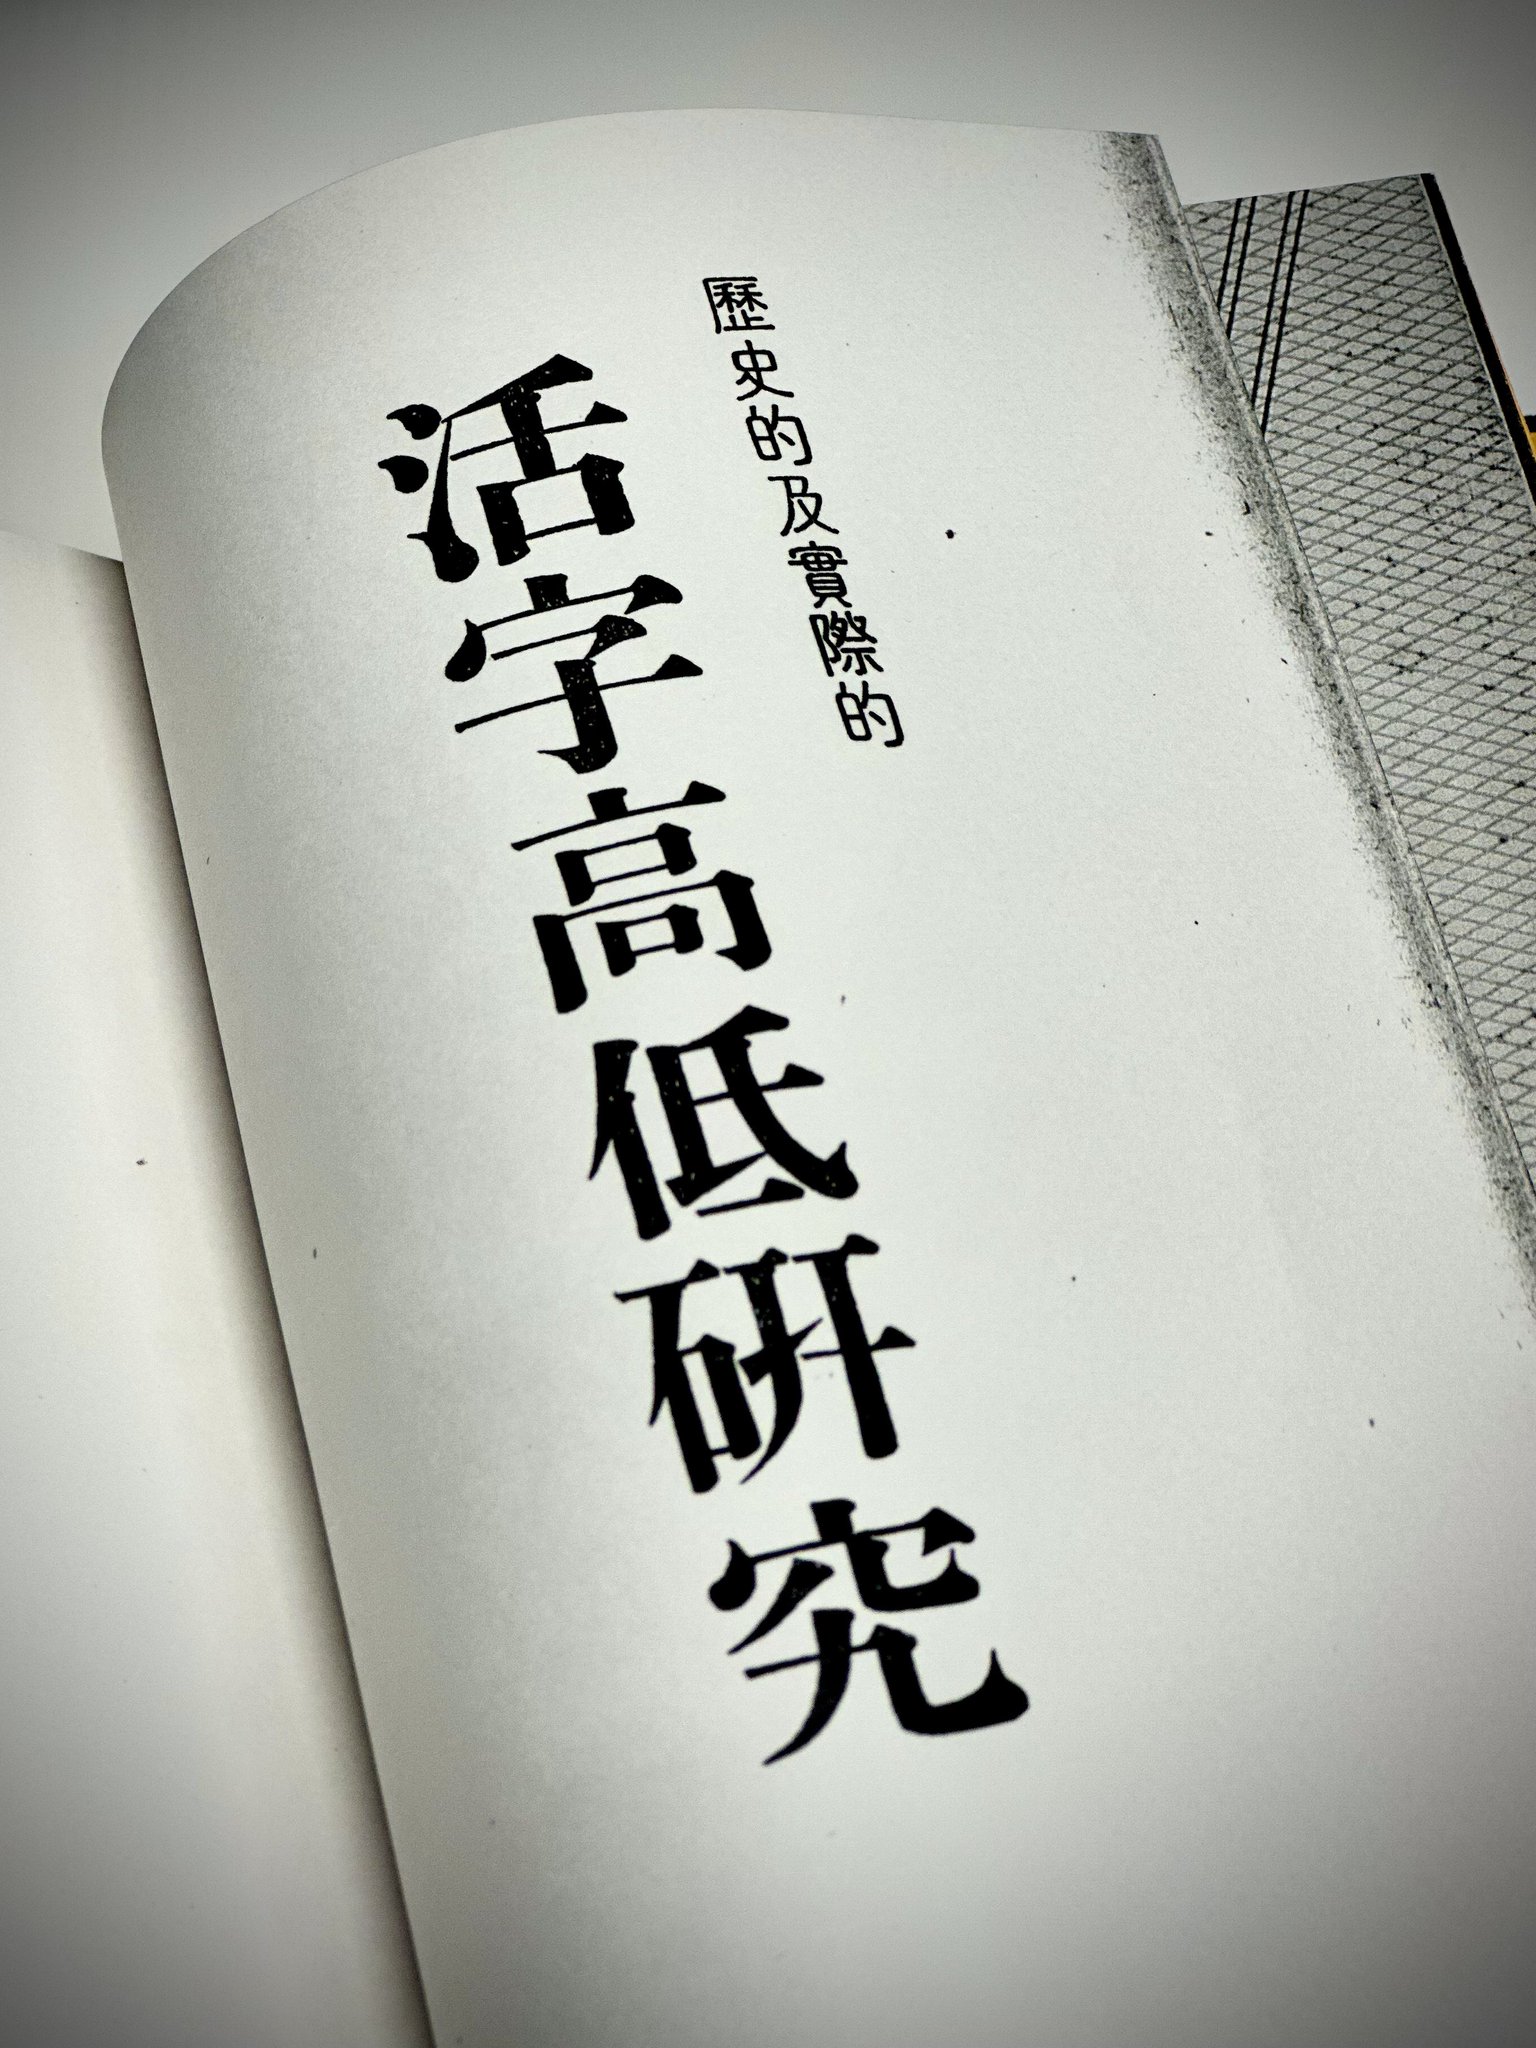 歷史的及實際的
活字高低硏究